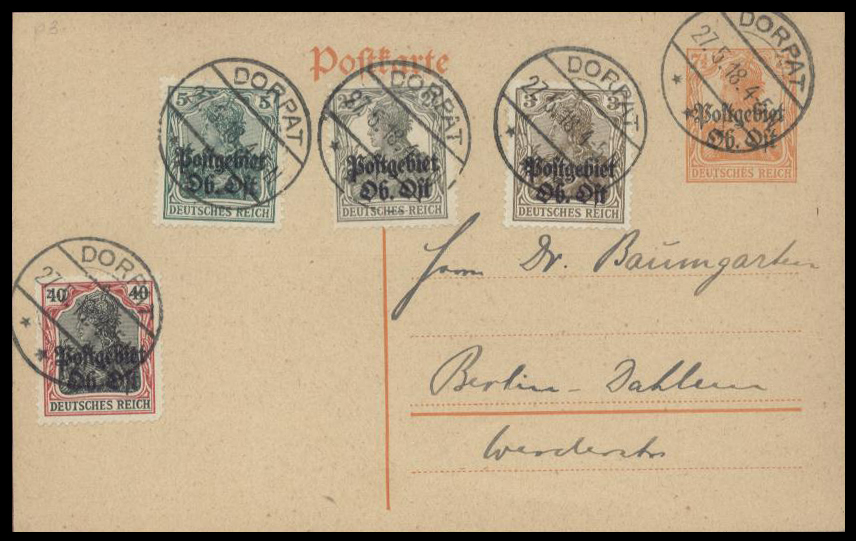 p3.
Postkarte
DORPAT
27.5.18.4-5
7½
Postgebiet
Ob. Ost
DEUTSCHES REICH
DORPAT
5 5
Postgebiet
Ob. Ost
DEUTSCHES REICH
DORPAT
27.5.18.4-
2½
Postgebiet
Ob. Ost
DEUTSCHES REICH
DORPAT
27.5.18.4-
3 3
Postgebiet
Ob. Ost
DEUTSCHES REICH
DORPAT
27.
40 40
Postgebiet
Ob. Ost
DEUTSCHES REICH
Herrn Dr. Baumgarten
Berlin-Dahlem
Werderstr